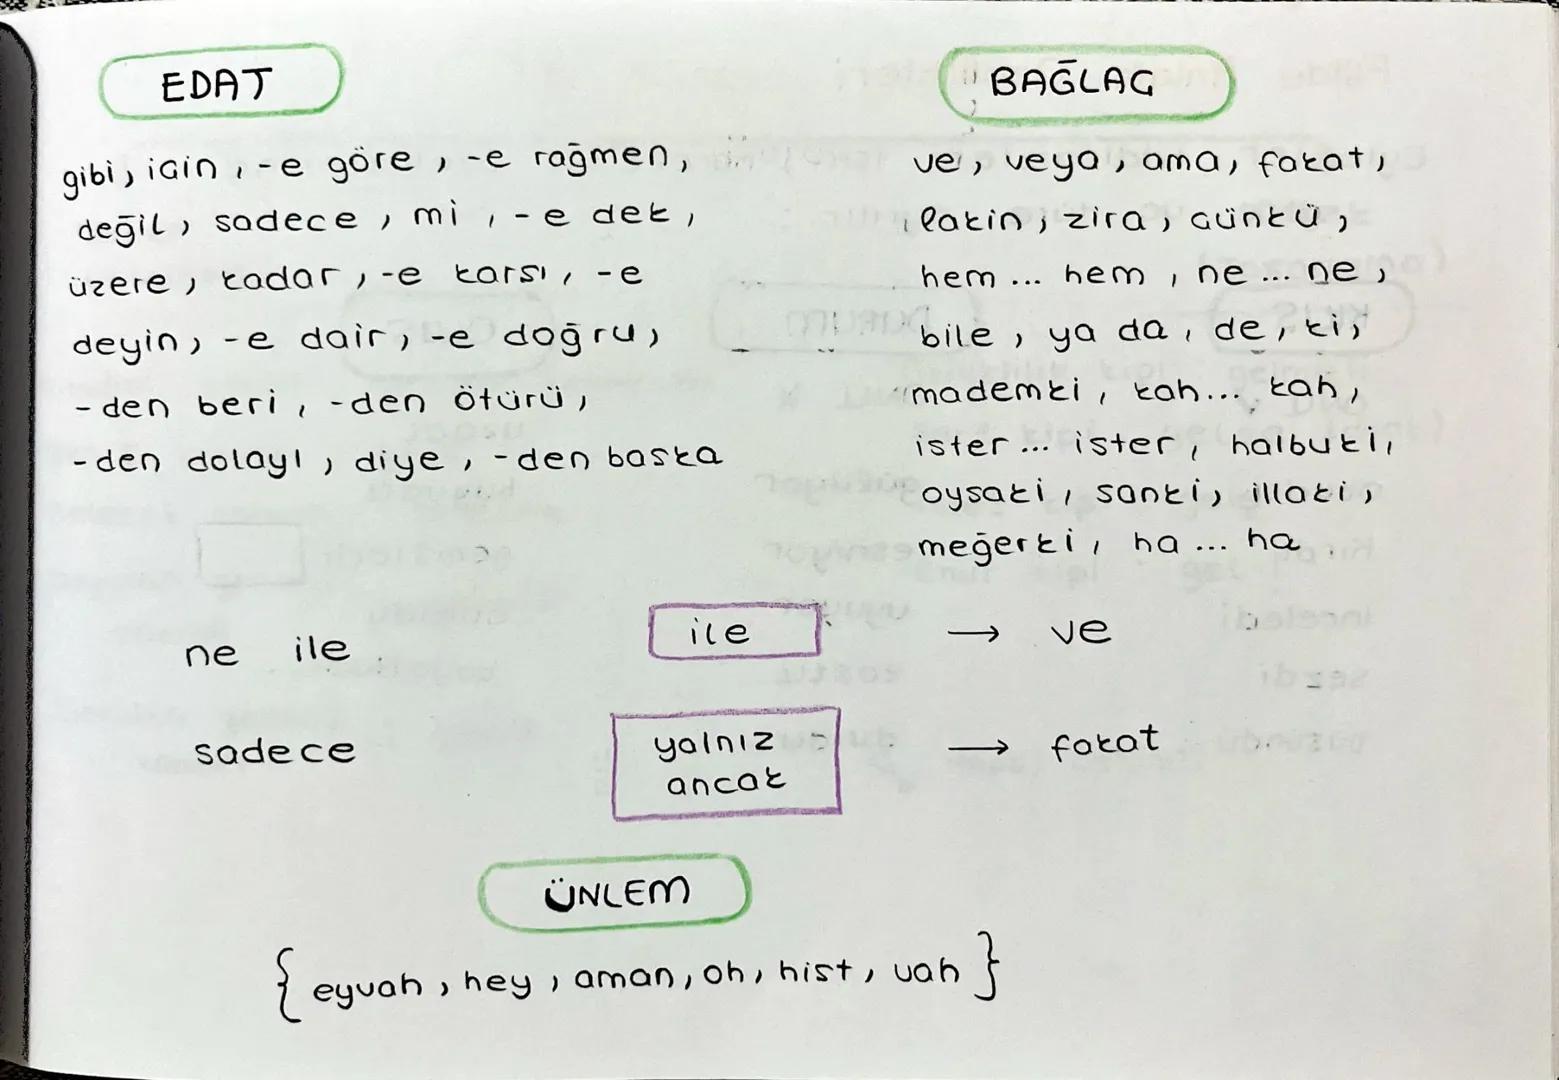 EDAT
gibi, için, -e göre, -e rağmen,
değil, sadece, mi, -e dek,
üzere, kadar, -e karsı, -e
deyin, -e dair, -e doğru,
-den beri, -den ötürü,
-den dolayı, diye, -den baska
BAĞLAÇ
ve, veya, ama, fakat,
lakin, zira, çünkü,
hem ... hem, ne ... ne,
bile, ya da, de, ki,
mademki, kah... kah,
ister ... ister, halbuki,
oysaki, sanki, illaki,
meğerki, ha ... ha
ne ile
ile
→ ve
sadece
yalnız
ancak
→ fakat
ÜNLEM
{ eyvah, hey, aman, oh, hist, vah }